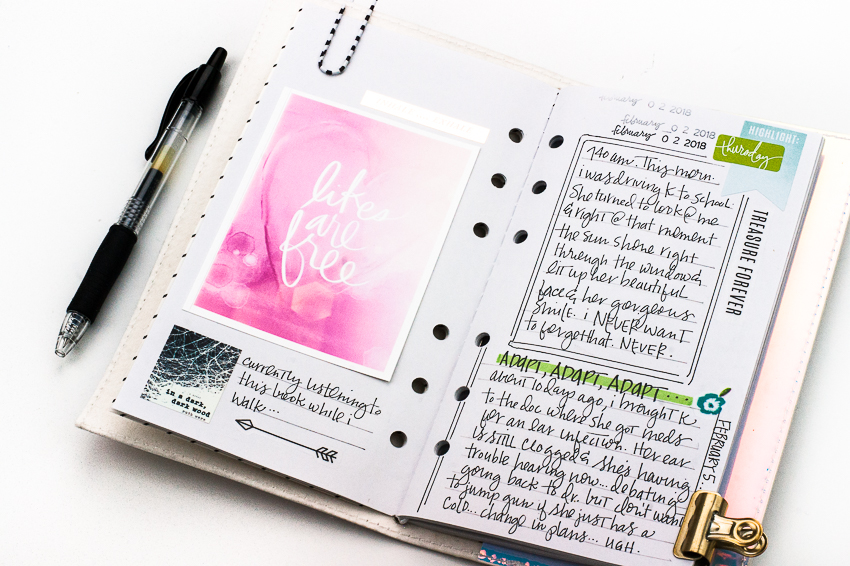 likes
are
free
in a dark,
dark wood
currently listening to
this book while i
walk...
february 0 2 2018
february 0 2 2018
february 0 2 2018
HIGHLIGHT:
thursday
740 am. This morn.
i was driving K to school.
She turned to look @ me
& right @ that moment
the sun shone right
through the window &
lit up her beautiful
face & her gorgeous
smile. i NEVER want
to forget that. NEVER.
TREASURE FOREVER
ADAPT, ADAPT, ADAPT....
about 10 days ago, i brought K
to the doc where she got meds
for an ear infection. Her ear
is STILL clogged & she's having
trouble hearing now... debating
going back to dr. but don't want
to jump gun if she just has a
cold... change in plans... UGH.
FEBRUARY 5